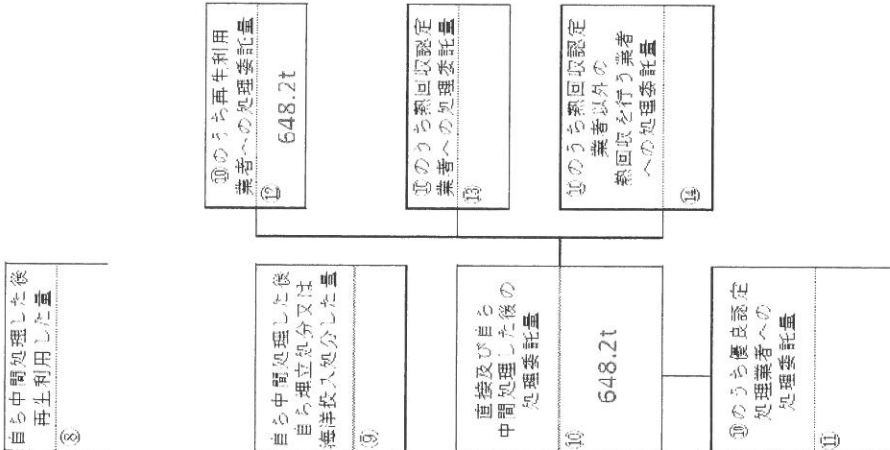 自ら中間処理した後
再生利用した量
⑧
自ら中間処理した後
自ら埋立処分又は
海洋投入処分した量
⑨
直接及び自ら
中間処理した後の
処理委託量
⑩
648.2t
⑩のうち優良認定
処理業者への
処理委託量
⑪
⑩のうち再生利用
業者への処理委託量
⑫
648.2t
⑩のうち熱回収認定
業者への処理委託量
⑬
⑩のうち熱回収認定
業者以外の
熱回収を行う業者
への処理委託量
⑭